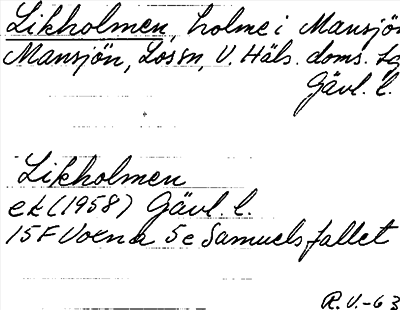 Likholmen, holme i Mansjön
Mansjön, Lossn, V. Häls. doms. sg
Gävl. l.
Likholmen
ek (1958) Gävl. l.
15F Voxna 5e Samuelsfallet
R.V.-63